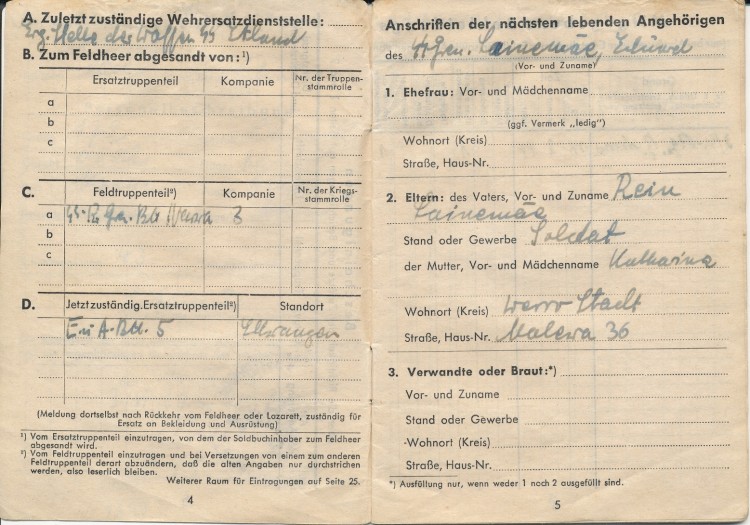 A. Zuletzt zuständige Wehrersatzdienststelle:
Erg. Stelle der Waffen SS Estland
B. Zum Feldheer abgesandt von:¹)
Ersatztruppenteil Kompanie Nr. der Truppen-
stammrolle
a
b
c
C. Feldtruppenteil²) Kompanie Nr. der Kriegs-
stammrolle
a SS-Pz. Gr. Btl. Narwa 3
b
c
D. Jetzt zuständig. Ersatztruppenteil²) Standort
E u A-Btl. 5 Ellwangen
(Meldung dortselbst nach Rückkehr vom Feldheer oder Lazarett, zuständig für
Ersatz an Bekleidung und Ausrüstung)
¹) Vom Ersatztruppenteil einzutragen, von dem der Soldbuchinhaber zum Feldheer
abgesandt wird.
²) Vom Feldtruppenteil einzutragen und bei Versetzungen von einem zum anderen
Feldtruppenteil derart abzuändern, daß die alten Angaben nur durchstrichen
werden, also leserlich bleiben.
Weiterer Raum für Eintragungen auf Seite 25.
4
Anschriften der nächsten lebenden Angehörigen
des Lainemäe, Eduard
(Vor- und Zuname)
1. Ehefrau: Vor- und Mädchenname
(ggf. Vermerk „ledig")
Wohnort (Kreis)
Straße, Haus-Nr.
2. Eltern: des Vaters, Vor- und Zuname Rein
Lainemäe
Stand oder Gewerbe Soldat
der Mutter, Vor- und Mädchenname Katharina
Wohnort (Kreis) Werro Stadt
Straße, Haus-Nr. Malewa 36
3. Verwandte oder Braut:*)
Vor- und Zuname
Stand oder Gewerbe
Wohnort (Kreis)
Straße, Haus-Nr.
*) Ausfüllung nur, wenn weder 1 noch 2 ausgefüllt sind.
5